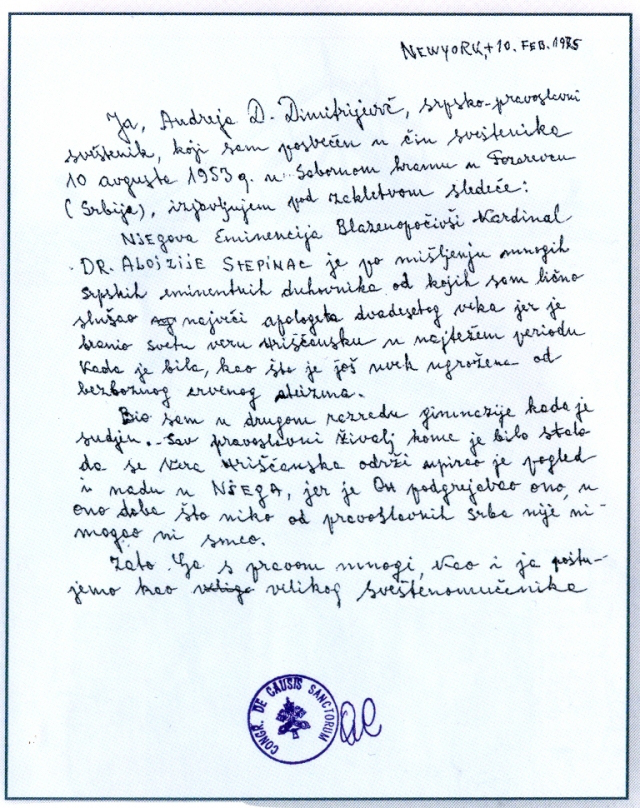 NEWYORK, +10. FEB. 1985
Ja, Andreja D. Dimitrijević, srpsko-pravoslavni
sveštenik, koji sam posvećen u čin sveštenika
10 avgusta 1953 g. u Sabornom hramu u Požarevcu
(Srbija), izjavljujem pod zakletvom sledeće:
NJEGOVA Eminencija Blaženopočivši Kardinal
DR. ALOJZIJE STEPINAC je po mišljenju mnogih
srpskih eminentnih duhovnika od kojih sam lično
slušao najveći apologeta dvadesetog veka jer je
branio svetu veru Hrišćansku u najtežem periodu
kada je bila, kao što je još uvek ugrožena od
bezbožnog crvenog ateizma.
Bio sam u drugom razredu gimnazije kada je
sudjen. Sav pravoslavni živalj kome je bilo stalo
da se Vera Hrišćanska održi upirao je pogled
i nadu u NJEGA, jer je On podgrejavao ono, u
ono doba što niko od pravoslavnih srba nije ni-
mogao ni smeo.
Zato Ga s pravom mnogi, kao i ja poštu-
jemo kao veliga velikog Sveštenomučenika
CONGR. DE CAUSIS SANCTORUM